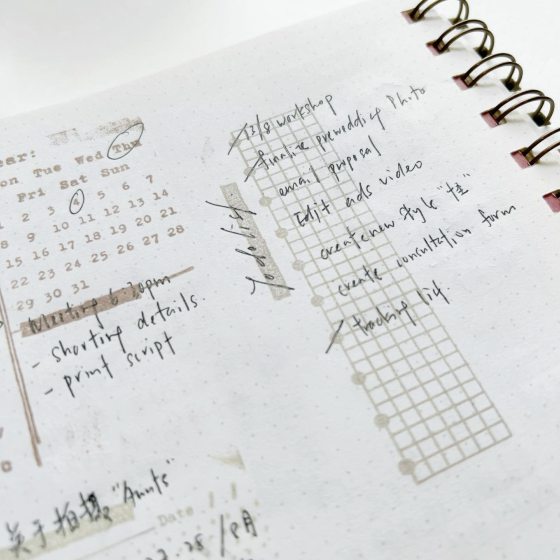 ear:
on Tue Wed Thu
Fri Sat Sun
1 2 3 4 5 6 7
8 9 10 11 12 13 14
15 16 17 18 19 20 21
22 23 24 25 26 27 28
29 30 31
Meeting 6:30pm
- shorting details.
- print script
13/8 workshop
finalize prewedding Photo
email proposal
Edit ads video
create new style "
create consultation form
tracking list
关于拍摄 "Aunts"
Date
28 /8月